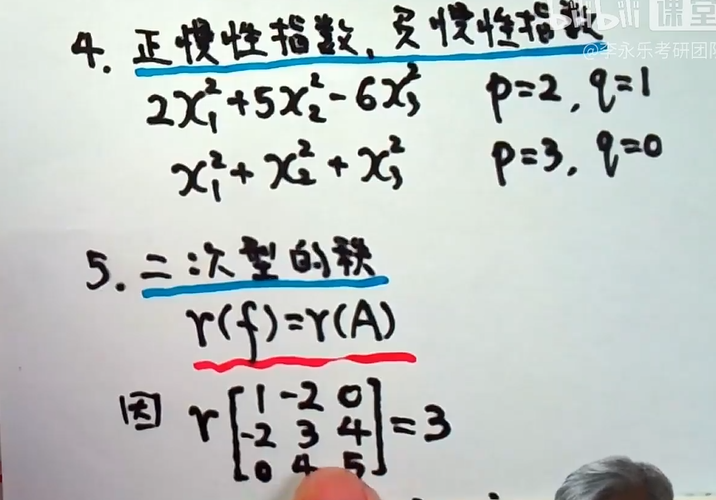 bilibili 课堂
@李永乐考研团队
4. 正惯性指数、负惯性指数
2x₁²+5x₂²-6x₃² p=2, q=1
x₁²+x₂²+x₃² p=3, q=0
5. 二次型的秩
r(f)=r(A)
因 r[1 -2 0
-2 3 4
0 4 5]=3